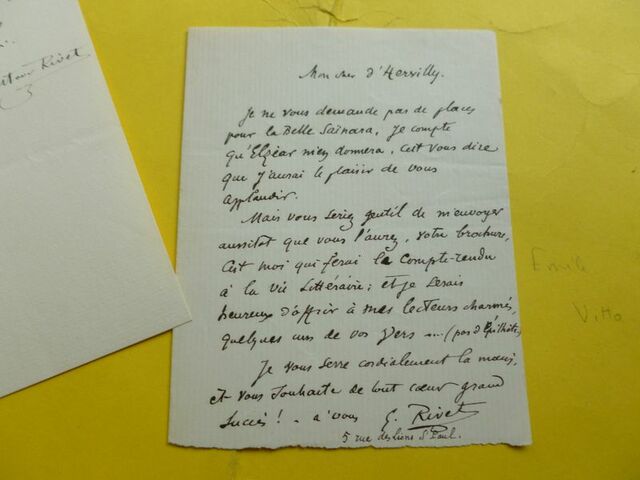 Gustave Rivet
Mon cher d'Hervilly.
Je ne vous demande pas de places
pour la Belle Saïnara, je compte
qu'Elzéar m'en donnera. C'est vous dire
que j'aurai le plaisir de vous
applaudir.
Mais vous seriez gentil de m'envoyer
aussitot que vous l'aurez, votre brochure,
C'est moi qui ferai le compte-rendu
à la Vie Littéraire; et je serais
heureux d'offrir à mes lecteurs charmés,
quelques uns de vos vers .... (pas d'Epithète)
Je vous serre cordialement la main,
et vous souhaite de tout cœur grand
succès! - à vous G. Rivet
5 rue des Lions St Paul.
Emile